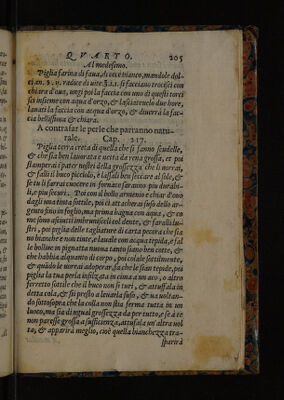 QVARTO. 205
Al medesimo.
Piglia farina di faua, di ceci bianco, mandole dol
ci an. 3. v. radice di vite si facciano trocisci con
chiara d'oua, ungi poi la faccia con uno di questi trocis
ci insieme con acqua d'orzo, & lasciauelo due hore,
lauati la faccia con acqua d'orzo, & diuerrà la fac-
cia bellissima & chiara.
A contrafar le perle che parranno natu-
rale. Cap. 217.
Piglia terra creta di quella che si fanno scudelle,
& che sia ben lauorata e netta da rena grossa, et poi
fà le bolle pater nostri della grossezza che ti uorrai,
& falli il buco picciolo, è lassali ben seccare al sole, &
se tu li farrai cuocere in fornace saranno piu durabi-
li, e piu securi. Poi con il bollo armenio e chiar d'ouo
dagli una tinta sottile, poi ci att acherai suso dello ar-
gento fino in foglio, ma prima bagna con aqua, & co
me sono asciutti imbruniscili col dente, & farali lu-
stri, poi piglia delle tagliature di carta pecora che sia
no bianche e non tinte, e lauale con acqua tepida, e fal
le bolline in pignatta nuoua tanto siano ben cotte, &
che habbia alquanto di corpo, poi colale sottilmente,
& quãdo le uorrai adoperar, fa che le siano tepide, poi
piglia la tua perla insilzata in cima à un aco, o altro
ferretto sottile che il buco non si turi, & attuffala in
detta cola, & sij presto a leuarla suso, & ua uoltan-
do sottosopra che la colla non stia ferma tutta in un
luoco, ma sia di ugual grossezza da per tutto, e se à te
non paresse grossa a sufficienza, attufala un' altra uol
ta, & apparirà meglio, cioè quella bianchezza tra-
sparirà